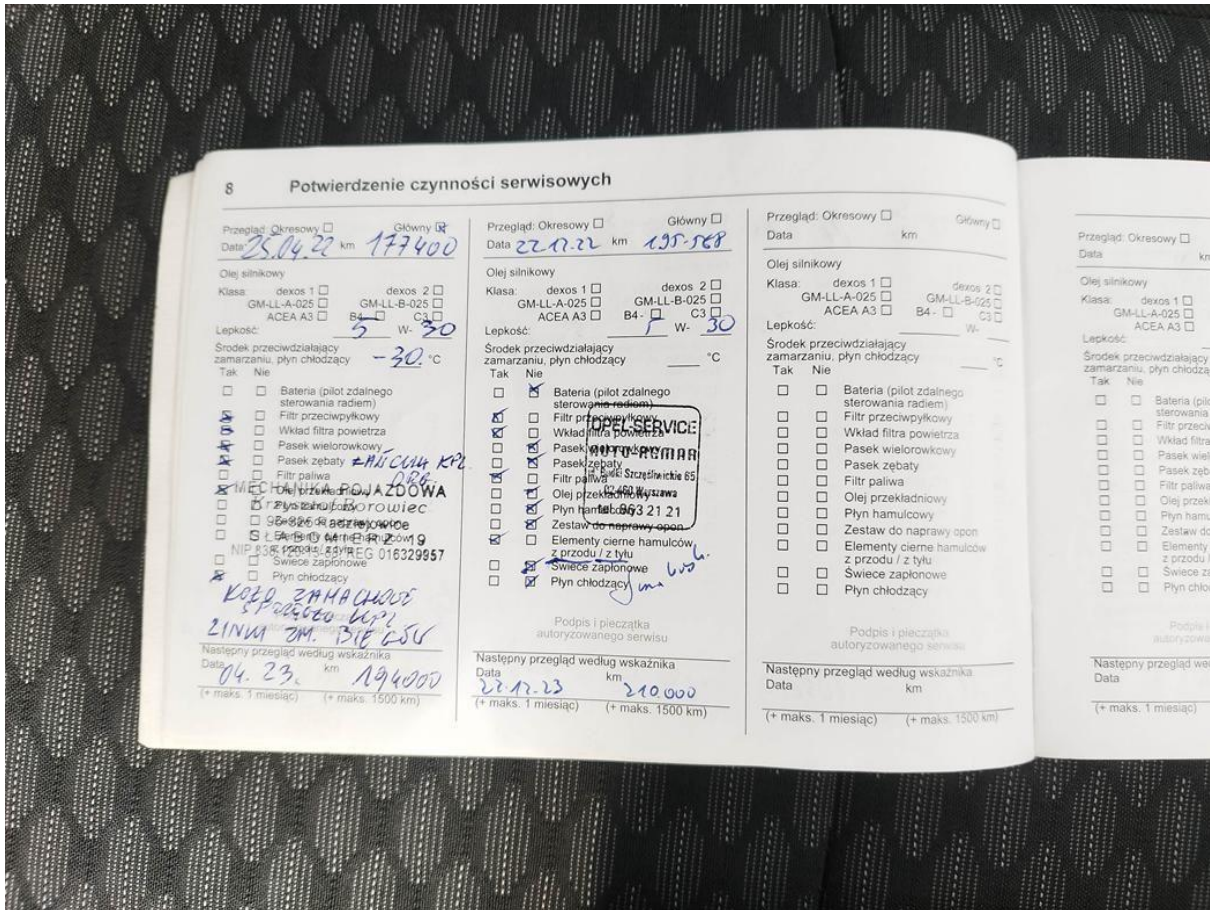 8 Potwierdzenie czynności serwisowych
Przegląd: Okresowy Główny
Data 25.04.22 km 177400
Olej silnikowy
Klasa: dexos 1 dexos 2
GM-LL-A-025 GM-LL-B-025
ACEA A3 B4- C3
Lepkość: 5 W- 30
Środek przeciwdziałający
zamarzaniu, płyn chłodzący -30 °C
Tak Nie
Bateria (pilot zdalnego
sterowania radiem)
Filtr przeciwpyłkowy
Wkład filtra powietrza
Pasek wielorowkowy
Pasek zębaty ŁAŃCUCH KPL
Filtr paliwa
Olej przekładniowy
MECHANIKA POJAZDOWA
Płyn hamulcowy
Zestaw do naprawy opon
96-325 Radziejowice
Elementy cierne hamulców
SŁABOMIERZ 19
z przodu / z tyłu
REG 016329957
Świece zapłonowe
Płyn chłodzący
KOŁO ZAMACHOWE
SPRZĘGŁO KPL
LINKI ZM. BIEGÓW
Następny przegląd według wskaźnika
Data 04.23. km 194000
(+ maks. 1 miesiąc) (+ maks. 1500 km)
Przegląd: Okresowy Główny
Data 22.12.22 km 195.568
Olej silnikowy
Klasa: dexos 1 dexos 2
GM-LL-A-025 GM-LL-B-025
ACEA A3 B4- C3
Lepkość: 5 W- 30
Środek przeciwdziałający
zamarzaniu, płyn chłodzący °C
Tak Nie
Bateria (pilot zdalnego
sterowania radiem)
Filtr przeciwpyłkowy
OPEL-SERVICE
Wkład filtra powietrza
Pasek wielorowkowy
AUTO-REMAR
Pasek zębaty
Filtr paliwa
Szczęśliwickie 65
Olej przekładniowy
02-460 Warszawa
Płyn hamulcowy
tel. 863 21 21
Zestaw do naprawy opon
Elementy cierne hamulców
z przodu / z tyłu
Świece zapłonowe
Płyn chłodzący
Podpis i pieczątka
autoryzowanego serwisu
Następny przegląd według wskaźnika
Data 22.12.23 km 210.000
(+ maks. 1 miesiąc) (+ maks. 1500 km)
Przegląd: Okresowy Główny
Data km
Olej silnikowy
Klasa: dexos 1 dexos 2
GM-LL-A-025 GM-LL-B-025
ACEA A3 B4- C3
Lepkość: W-
Środek przeciwdziałający
zamarzaniu, płyn chłodzący °C
Tak Nie
Bateria (pilot zdalnego
sterowania radiem)
Filtr przeciwpyłkowy
Wkład filtra powietrza
Pasek wielorowkowy
Pasek zębaty
Filtr paliwa
Olej przekładniowy
Płyn hamulcowy
Zestaw do naprawy opon
Elementy cierne hamulców
z przodu / z tyłu
Świece zapłonowe
Płyn chłodzący
Podpis i pieczątka
autoryzowanego serwisu
Następny przegląd według wskaźnika
Data km
(+ maks. 1 miesiąc) (+ maks. 1500 km)
Przegląd: Okresowy
Data
Olej silnikowy
Klasa: dexos 1
GM-LL-A-025
ACEA A3
Lepkość:
Środek przeciwdziałający
zamarzaniu, płyn chłodzą
Tak Nie
Bateria (pilo
sterowania
Filtr przeciw
Wkład filtra
Pasek wiel
Pasek zęb
Filtr paliwa
Olej przek
Płyn hamu
Zestaw do
Elementy
z przodu /
Świece za
Płyn chłod
Podpis
autoryzowa
Następny przegląd we
Data
(+ maks. 1 miesiąc)